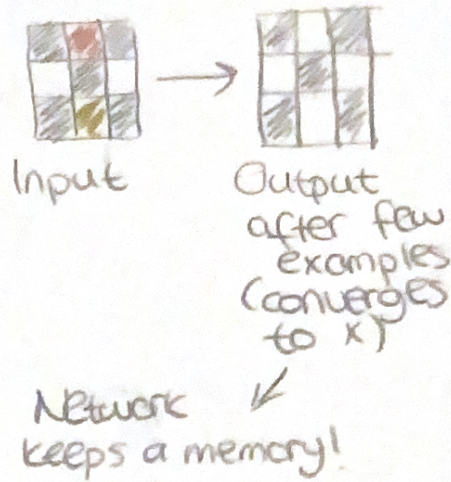 Input
Output
after few
examples
(converges
to X)
Network
keeps a memory!